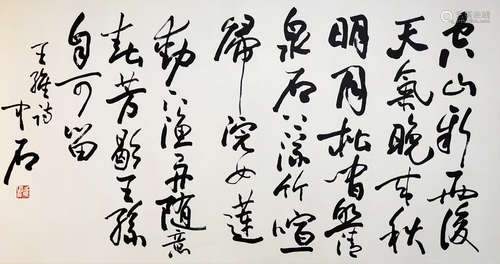 空山新雨後
天氣晚来秋
明月松間照清
泉石上流竹喧
歸浣女蓮
動下漁舟随意
春芳歇王孫
自可留
王維詩
中石